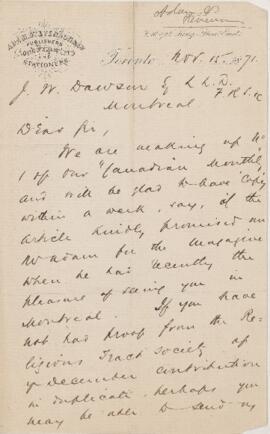 Adam &
Stevenson
ADAM, STEVENSON & CO
PUBLISHERS
BOOK IMPORTERS
AND
STATIONERS
Toronto Nov. 15 1871
J. W. Dawson Esq L L. D.
F R S &c
Montreal
Dear Sir,
We are making up No
1 of our "Canadian Monthly"
and will be glad to have "copy"
within a week, say, of the
article kindly promised our
Mr Adam for the Magazine
when he had recently the
pleasure of seeing you in
Montreal. If you have
not had proof from the Re-
ligious Tract Society of
yr December contribution
in duplicate, perhaps you
may be able to send us